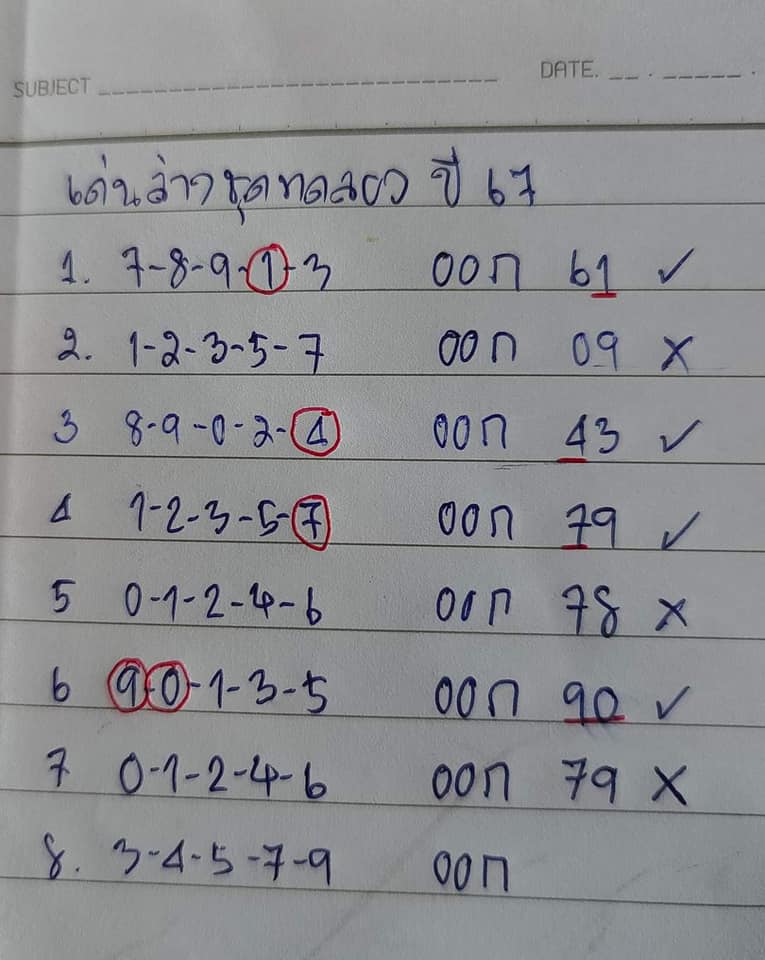 SUBJECT DATE.
เด่นล่างชุดทดสอบ ปี 67
1. 7-8-9-1-3 ออก 61 ✓
2. 1-2-3-5-7 ออก 09 ✗
3 8-9-0-2-4 ออก 43 ✓
4 1-2-3-5-7 ออก 79 ✓
5 0-1-2-4-6 ออก 78 ✗
6 9-0-1-3-5 ออก 90 ✓
7 0-1-2-4-6 ออก 79 ✗
8. 3-4-5-7-9 ออก